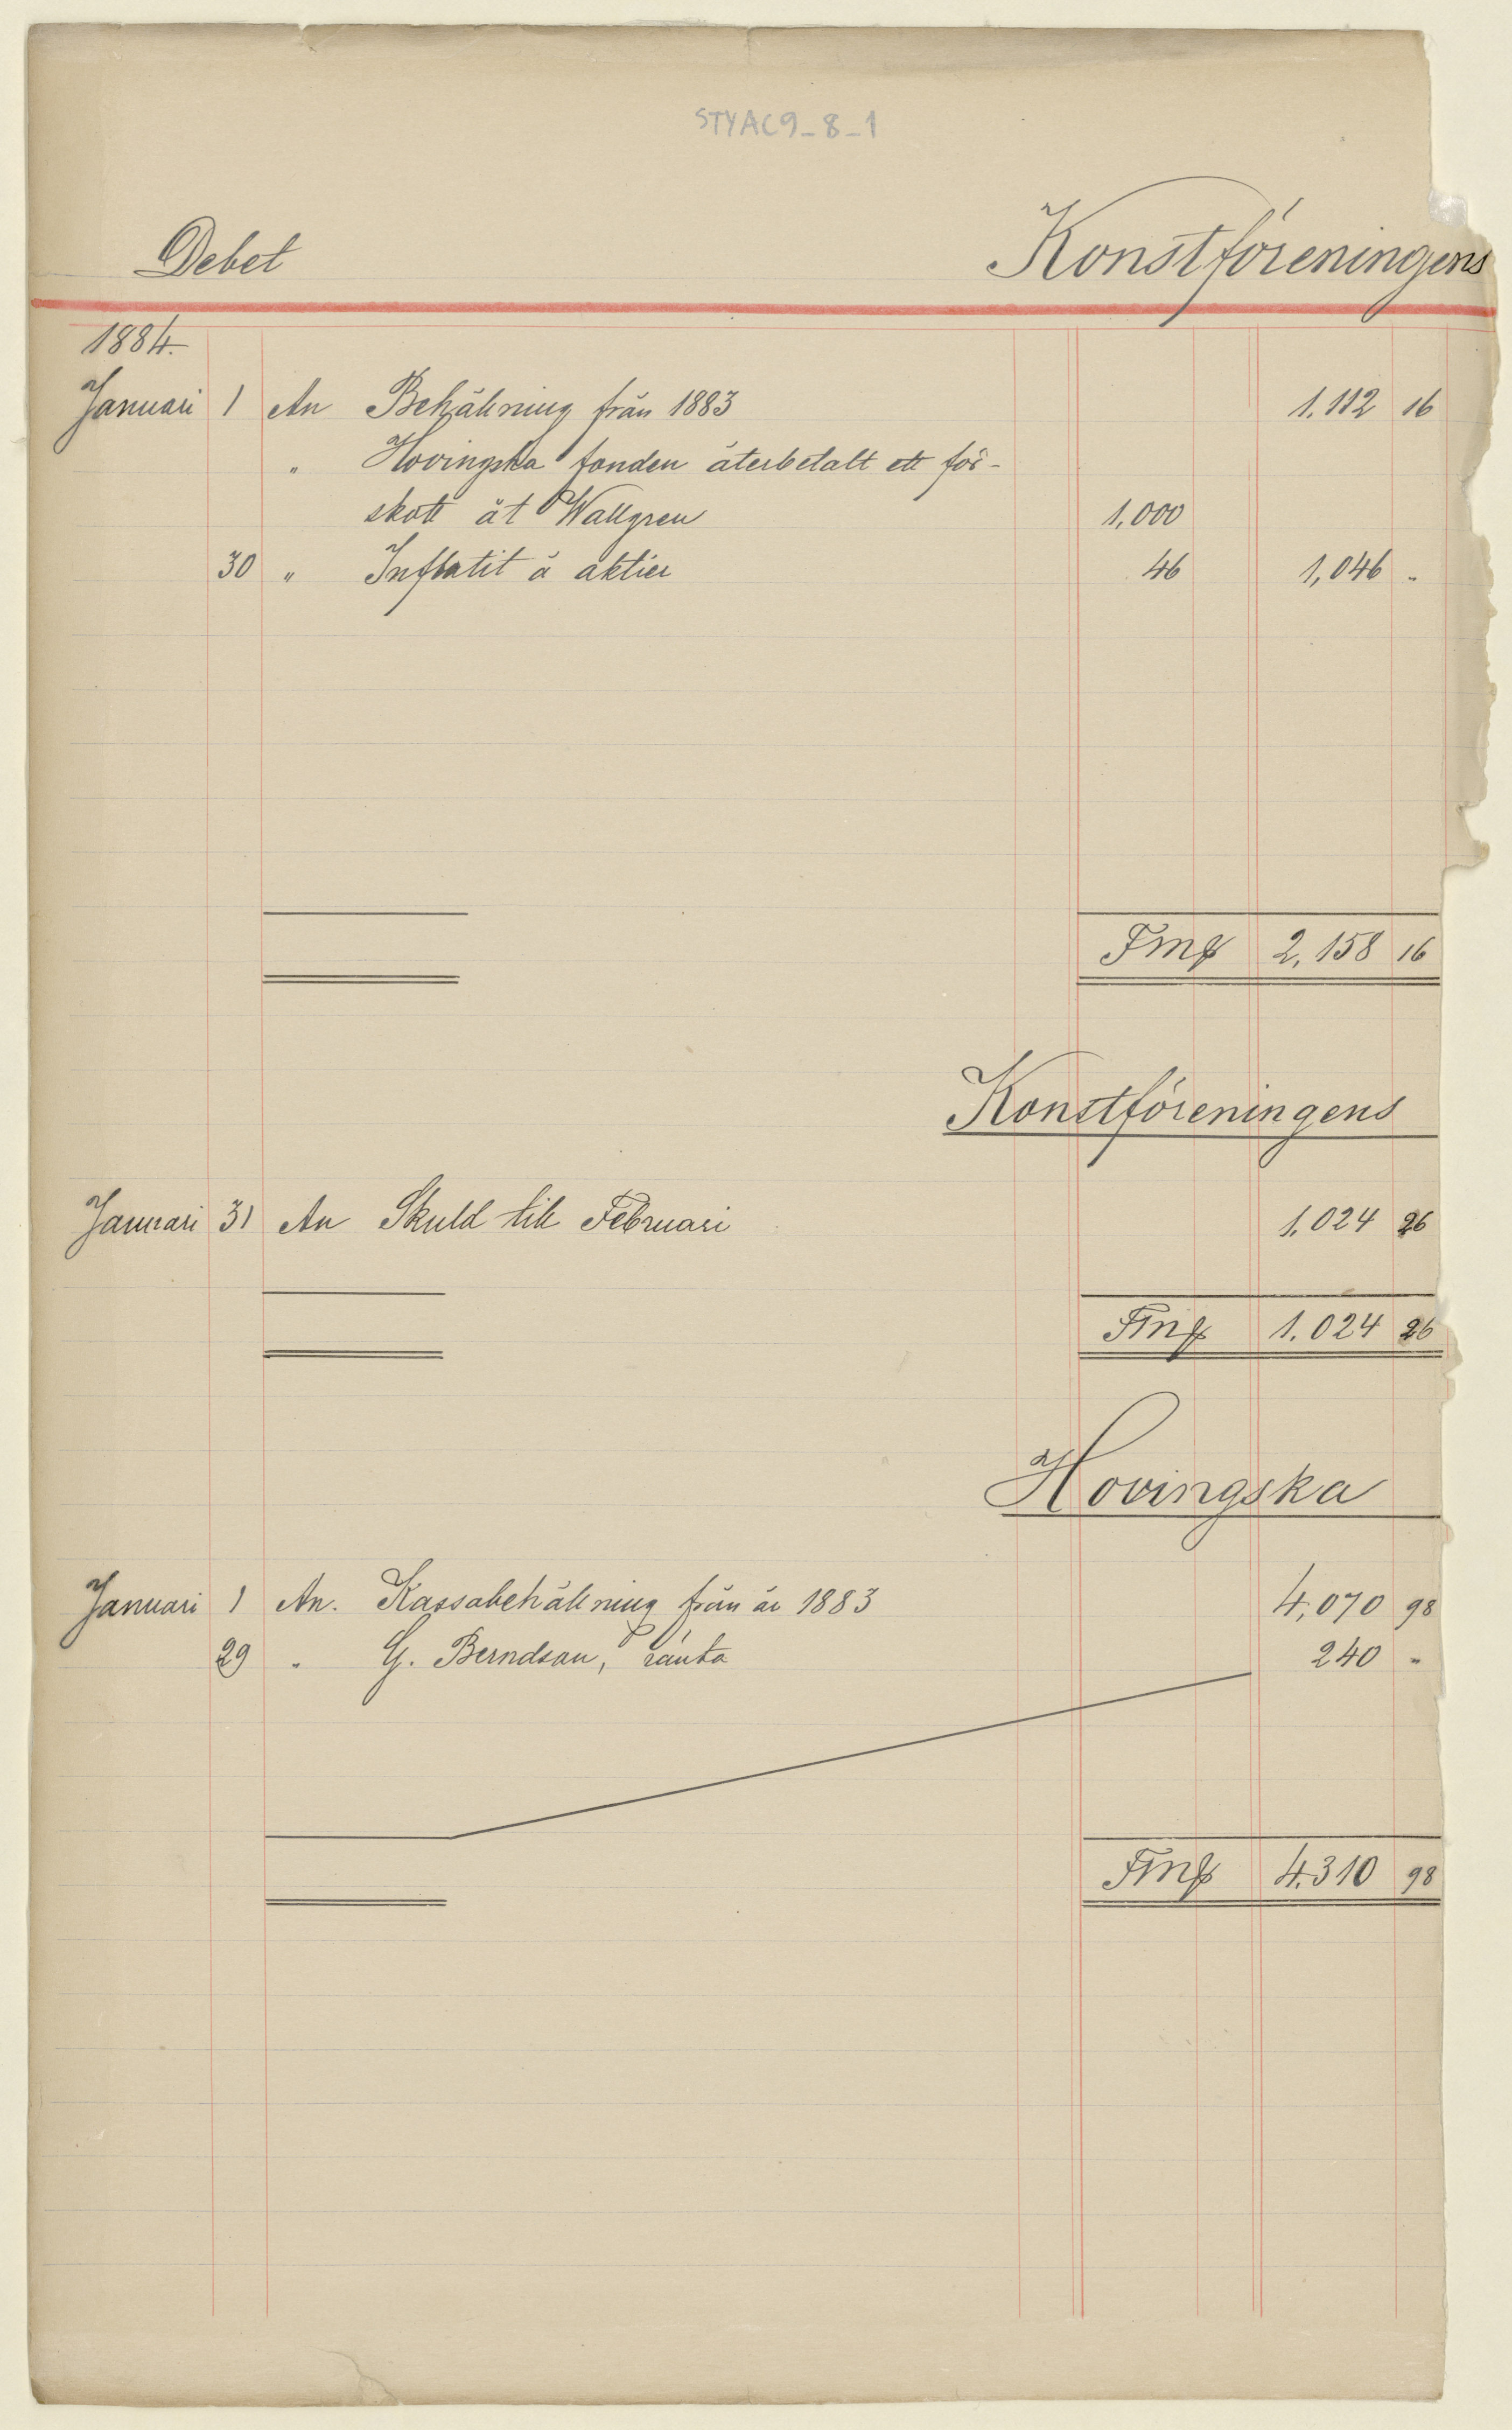 STYAC9_8_1
Debet Konstföreningens
1884.
Januari 1 An Behållning från 1883 1.112 16
" Hovingska fonden återbetalt ett för-
skott åt Wallgren 1,000
30 " Influtit å aktier 46 1,046 "
Fmk 2,158 16
Konstföreningens
Januari 31 An Skuld till Februari 1.024 26
Fmk 1.024 26
Hovingska
Januari 1 An. Kassabehållning från år 1883 4,070 98
29 " G. Berndson, ränta 240 "
Fmk 4.310 98